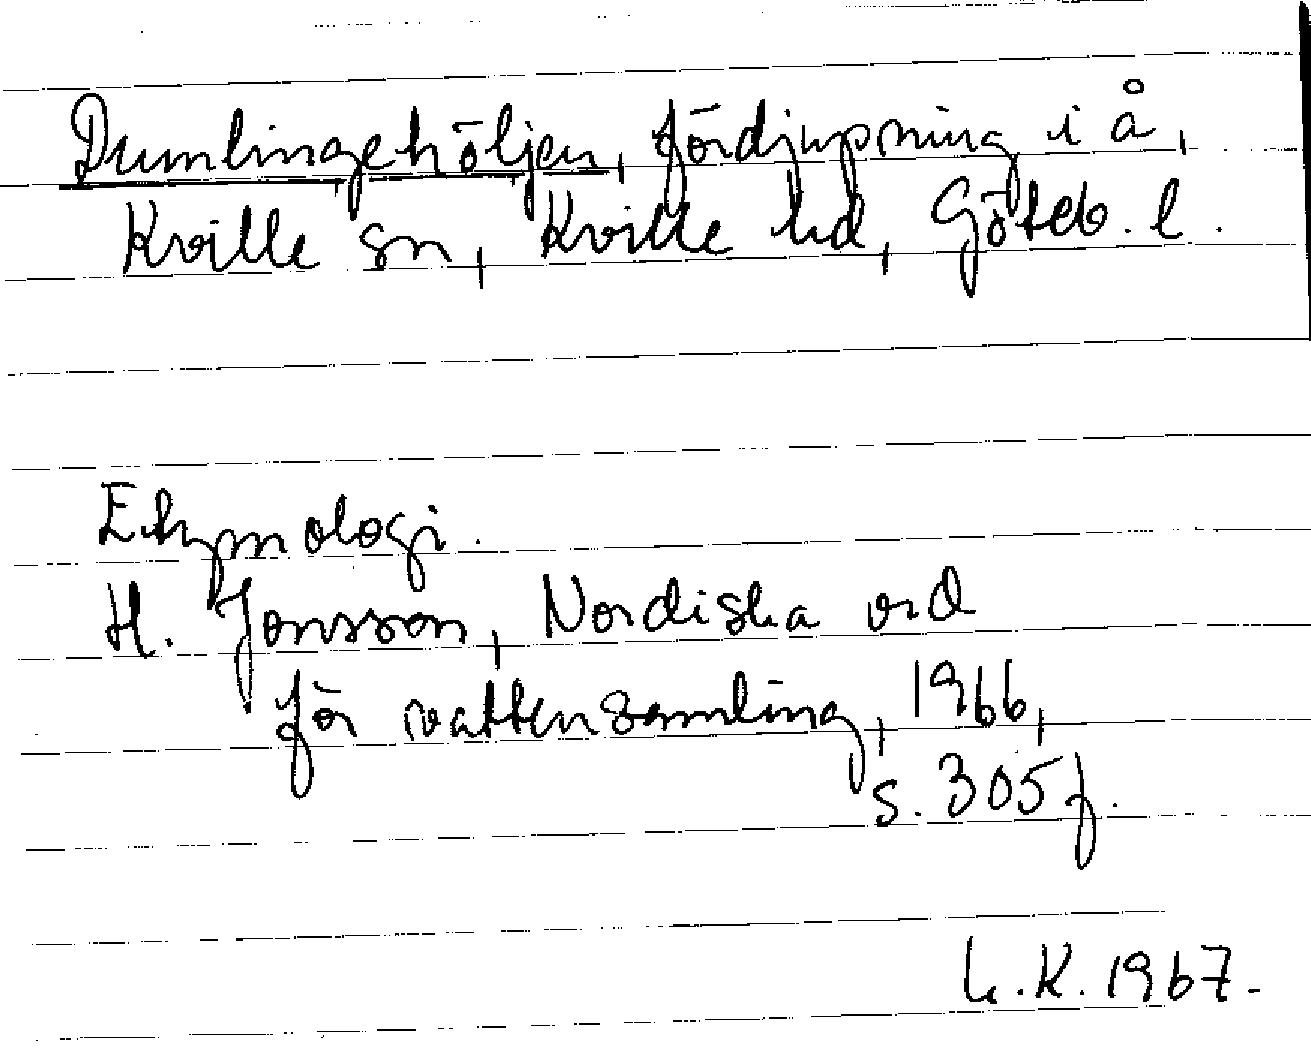 Dumlingehöljen, fördjupning i å,
Kville sn, Kville hd, Göteb. l.
Etymologi.
H. Jonsson, Nordiska ord
för vattensamling, 1966,
s. 305f.
L.K. 1967.